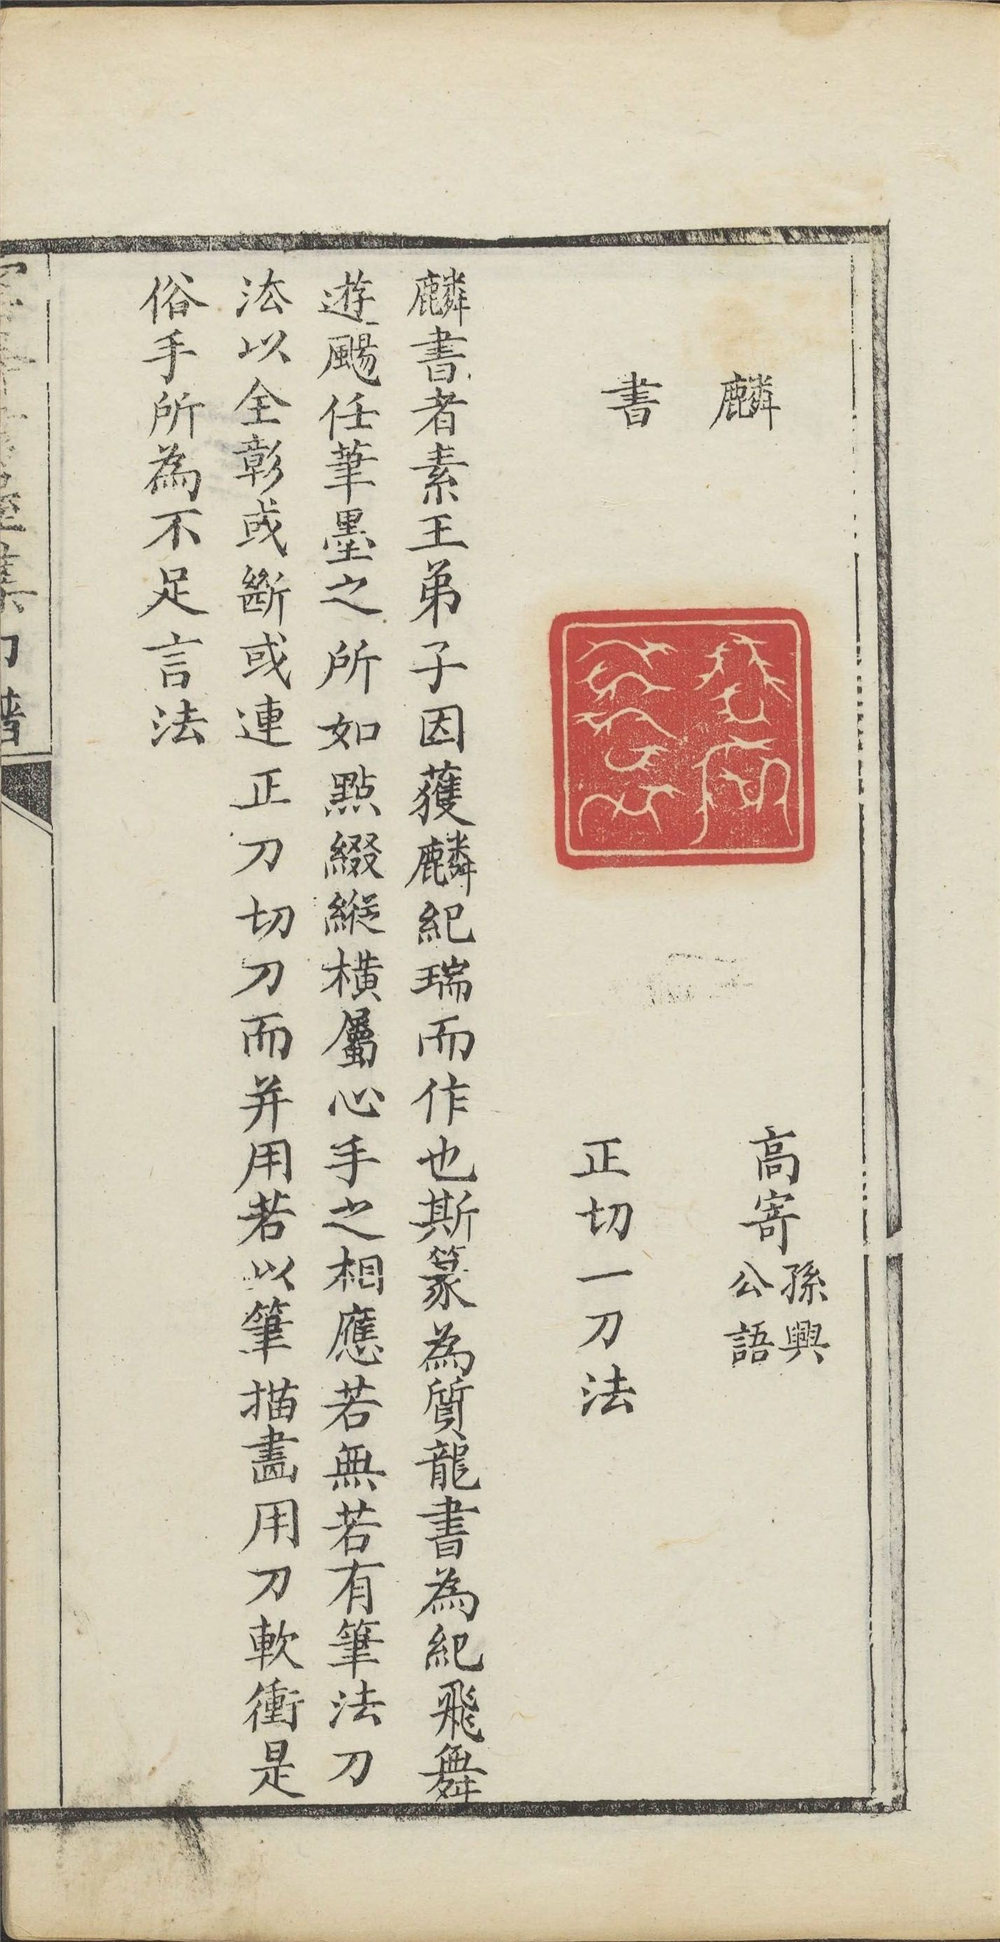 麟
書
高寄
孫興
公語
正切一刀法
麟書者素王弟子因獲麟紀瑞而作也斯篆為質龍書為紀飛舞
遊颺任筆墨之所如點綴縱橫屬心手之相應若無若有筆法刀
法以全彰或斷或連正刀切刀而并用若以筆描畫用刀軟衝是
俗手所為不足言法